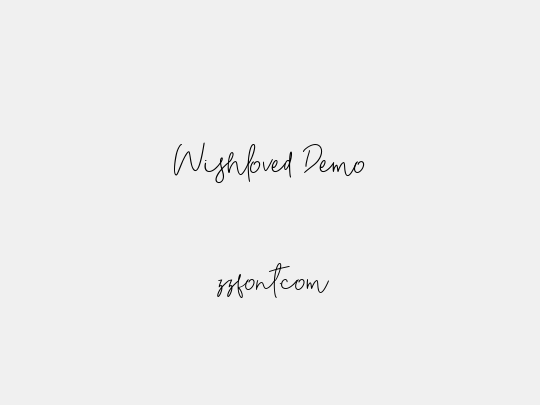 Wishloved Demo
zzfontcom